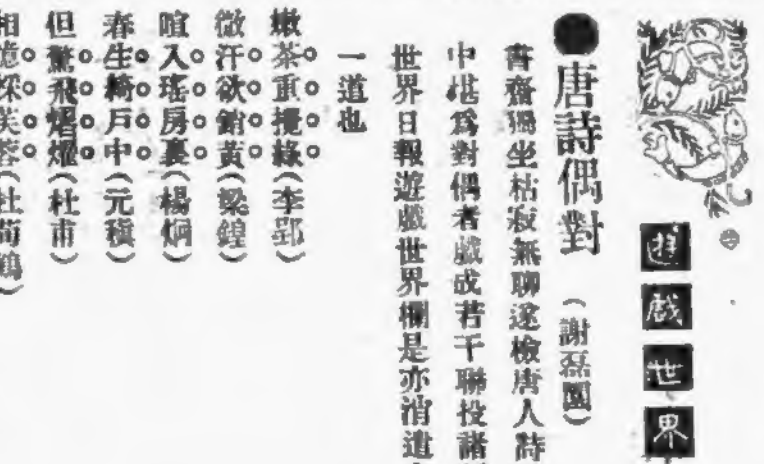 遊戲世界
●唐詩偶對　（謝磊園）
書齋獨坐枯寂無聊遂檢唐人詩
中堪爲對偶者戲成若干聯投諸
世界日報遊戲世界欄是亦消遣
一道也
嫩茶重攪綠（李郢）
微汗欲銷黃（梁鍠）
喧入瑤房裏（楊炯）
春生綺戶中（元稹）
但驚飛熠燿（杜甫）
相憶採芙蓉（杜荀鶴）